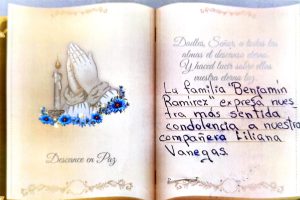 Descanse en Paz
Dadles, Señor, a todas las
almas el descanso eterno.
Y haced lucir sobre ellas
vuestra eterna luz.
La familia "Benjamín
Ramírez" expresa nues
tra más sentida
condolencia a nuestra
compañera Liliana
Vanegas.